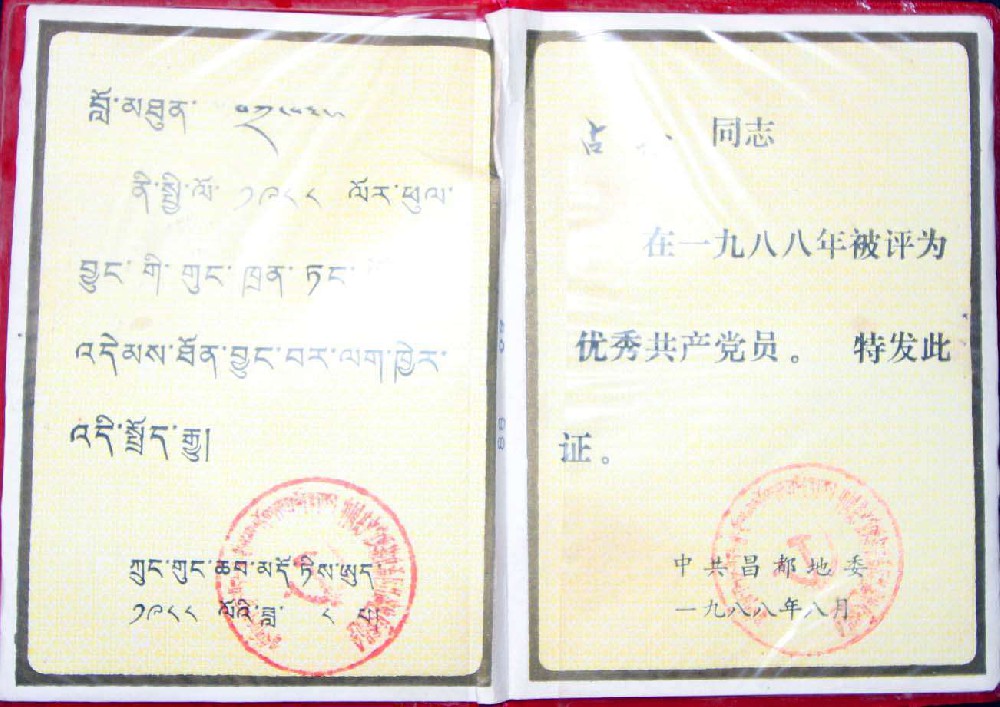 བློ་མཐུན་
ནི་སྤྱི་ལོ་ ༡༩༨༨ ལོར་ཕུལ་
བྱུང་གི་གུང་ཁྲན་ཏང་
འདེམས་ཐོན་བྱུང་བར་ལག་ཁྱེར་
འདི་སྤྲོད་རྒྱུ།
ཀྲུང་གུང་ཆབ་མདོ་ཏིས་ཨུད་
༡༩༨༨ ལོའི་ཟླ་ ༨ པ
占 同志
在一九八八年被评为
优秀共产党员。 特发此
证。
中共昌都地委
一九八八年八月